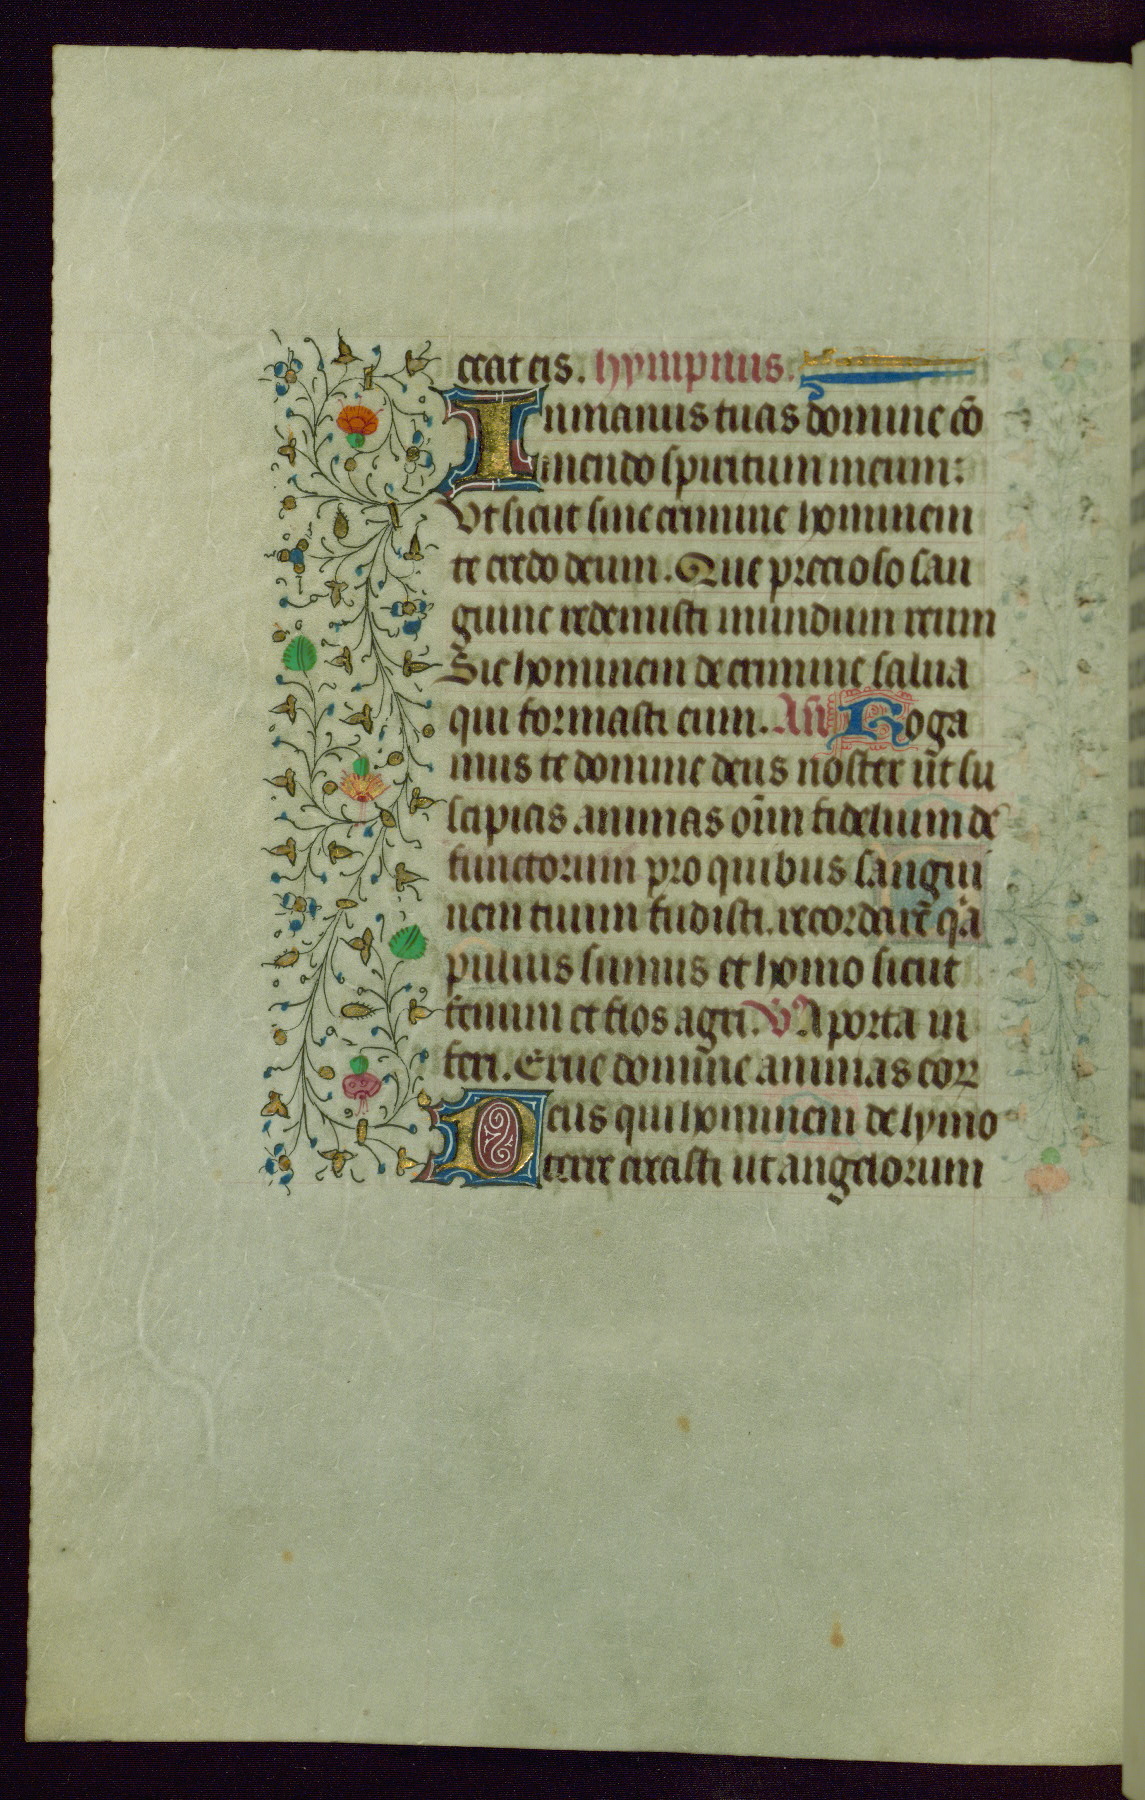 ceat eis. hympnus.
In manus tuas domine cō
mendo spiritum meum:
Vt sicut sine crimine hominem
te credo deum. Que precioso san
guine redemisti mundum reum
Sic hominem de crimine salua
qui formasti eum. Añ Roga
mus te domine deus noster ut su
scipias animas oīm fidelium de
functorum pro quibus sangui
nem tuum fudisti. recordare qͥa
puluis sumus et homo sicut
fenum et flos agri. V. A porta in
feri. Erue domine animas eorꝝ
Deus qui hominem de lymo
terre creasti ut angelorum